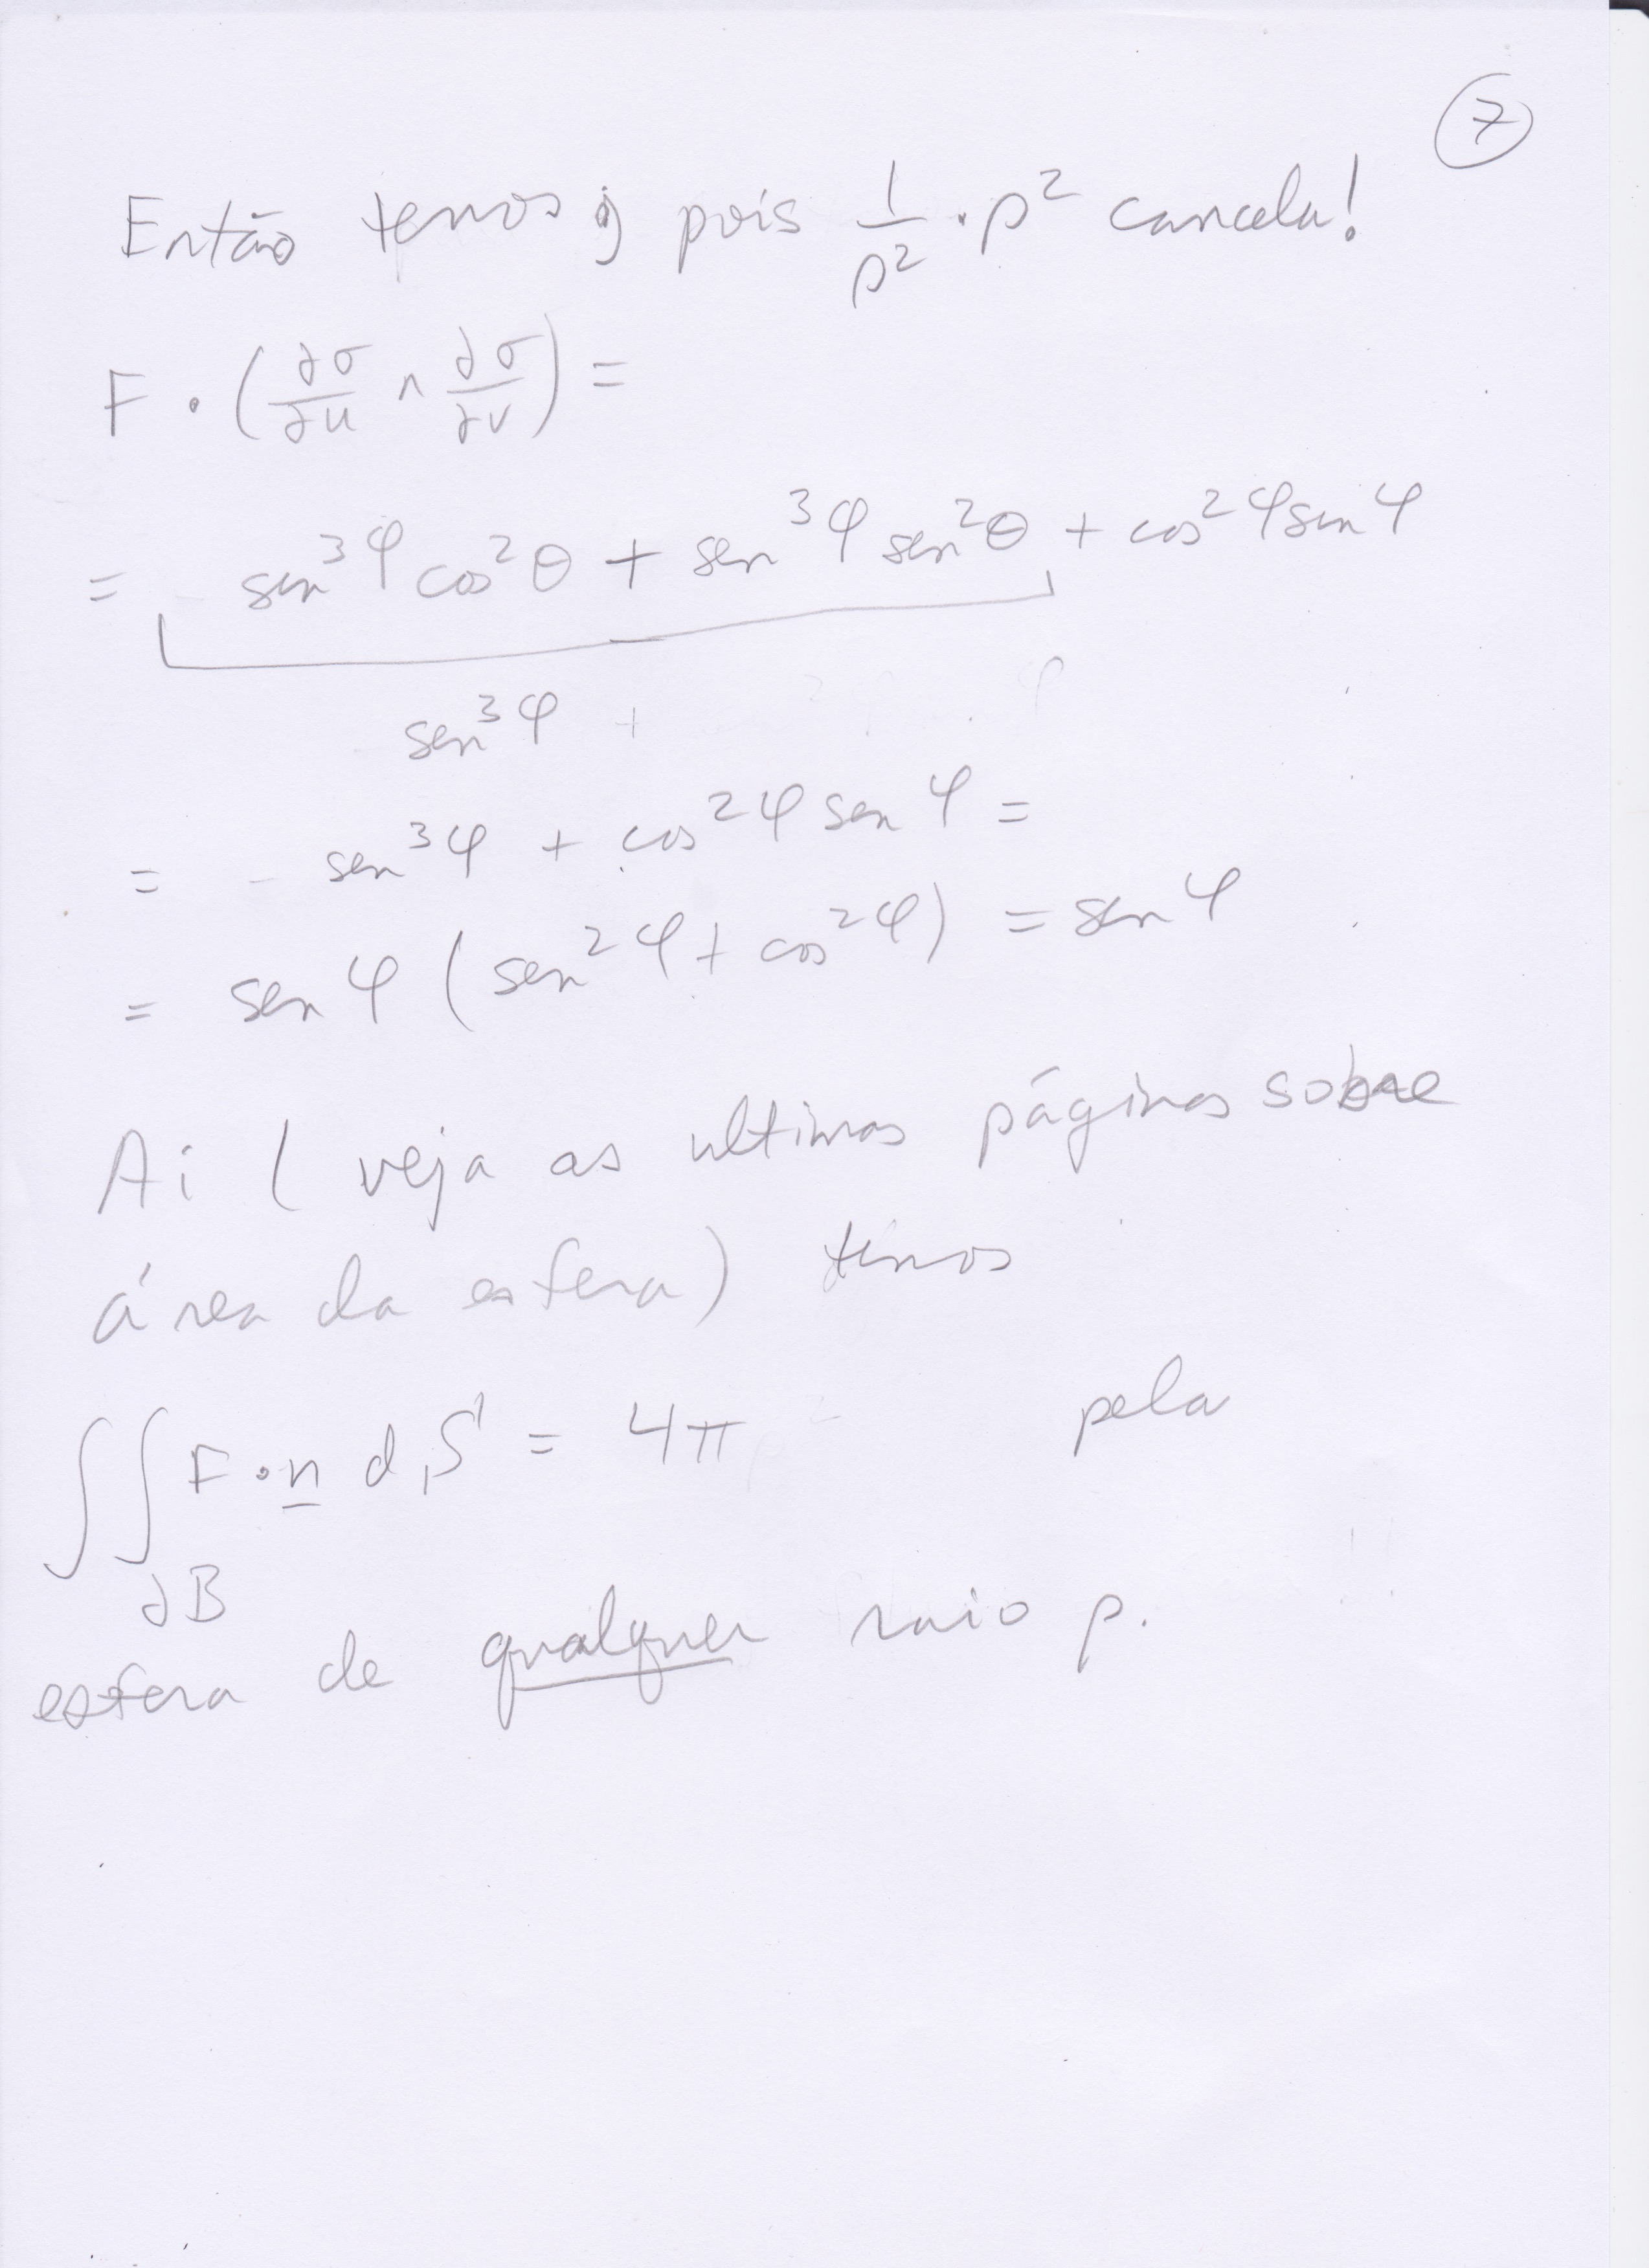 7
Então temos, pois 1/ρ² · ρ² cancela!
F · (∂σ/∂u ∧ ∂σ/∂v) =
= sen³φ cos²θ + sen³φ sen²θ + cos²φ sen φ
sen³φ +
= - sen³φ + cos²φ sen φ =
= sen φ (sen²φ + cos²φ) = sen φ
Ai ( veja as ultimas páginas sobre
área da esfera) temos
∫∫ F · n dS = 4π pela
∂B
esfera de qualquer raio ρ.